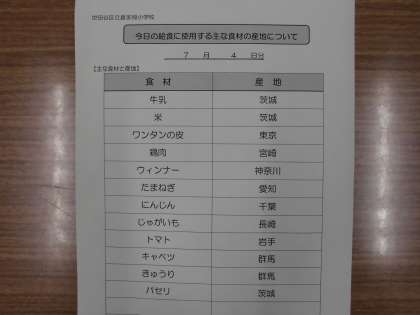 世田谷区立喜多見小学校
今日の給食に使用する主な食材の産地について
7 月 4 日分
【主な食材と産地】
食 材 産 地
牛乳 茨城
米 茨城
ワンタンの皮 東京
鶏肉 宮崎
ウィンナー 神奈川
たまねぎ 愛知
にんじん 千葉
じゃがいも 長崎
トマト 岩手
キャベツ 群馬
きゅうり 群馬
パセリ 茨城